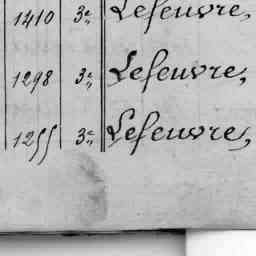 1410 3e Lefeuvre,
1298 3e Lefeuvre,
1255 3e Lefeuvre,